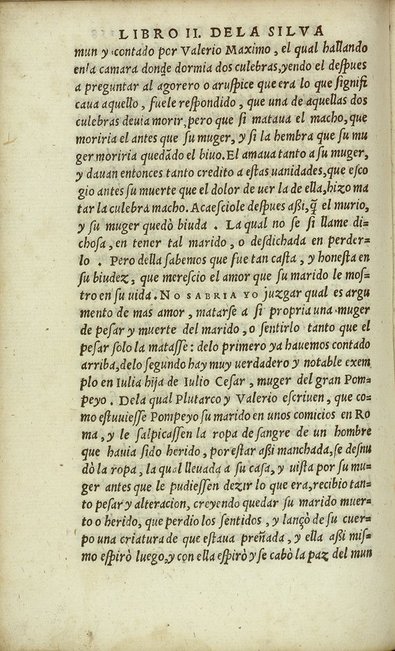 LIBRO II. DELA SILVA
mun y contado por Valerio Maximo, el qual hallando
enla camara donde dormia dos culebras, yendo el despues
a preguntar al agorero o aruspice que era lo que signifi
caua aquello, fuele respondido, que una de aquellas dos
culebras deuia morir, pero que si mataua el macho, que
moriria el antes que su muger, y si la hembra que su mu
ger moriria quedãdo el biuo. El amaua tanto a su muger,
y dauan entonces tanto credito a estas uanidades, que esco
gio antes su muerte que el dolor de uer la de ella, hizo ma
tar la culebra macho. Acaesciole despues aßi, q̃ el murio,
y su muger quedò biuda. La qual no se si llame di=
chosa, en tener tal marido, o desdichada en perder=
lo. Pero della sabemos que fue tan casta, y honesta en
su biudez, que merescio el amor que su marido le mos=
tro en su uida. NO SABRIA YO juzgar qual es argu
mento de mas amor, matarse a si propria una muger
de pesar y muerte del marido, o sentirlo tanto que el
pesar solo la matasse: delo primero ya hauemos contado
arriba, delo segundo hay muy uerdadero y notable exem
plo en Iulia hija de Iulio Cesar, muger del gran Pom=
peyo. Dela qual Plutarco y Valerio escriuen, que co=
mo estuuiesse Pompeyo su marido en unos comicios en Ro
ma, y le salpicassen la ropa de sangre de un hombre
que hauia sido herido, por estar aßi manchada, se desnu
dò la ropa, la qual lleuada a su casa, y uista por su mu=
ger antes que le pudiessen dezir lo que era, recibio tan=
to pesar y alteracion, creyendo quedar su marido muer=
to o herido, que perdio los sentidos, y lançò de su cuer=
po una criatura de que estaua preñada, y ella aßi mis=
mo espirò luego, y con ella espirò y se cabò la paz del mun